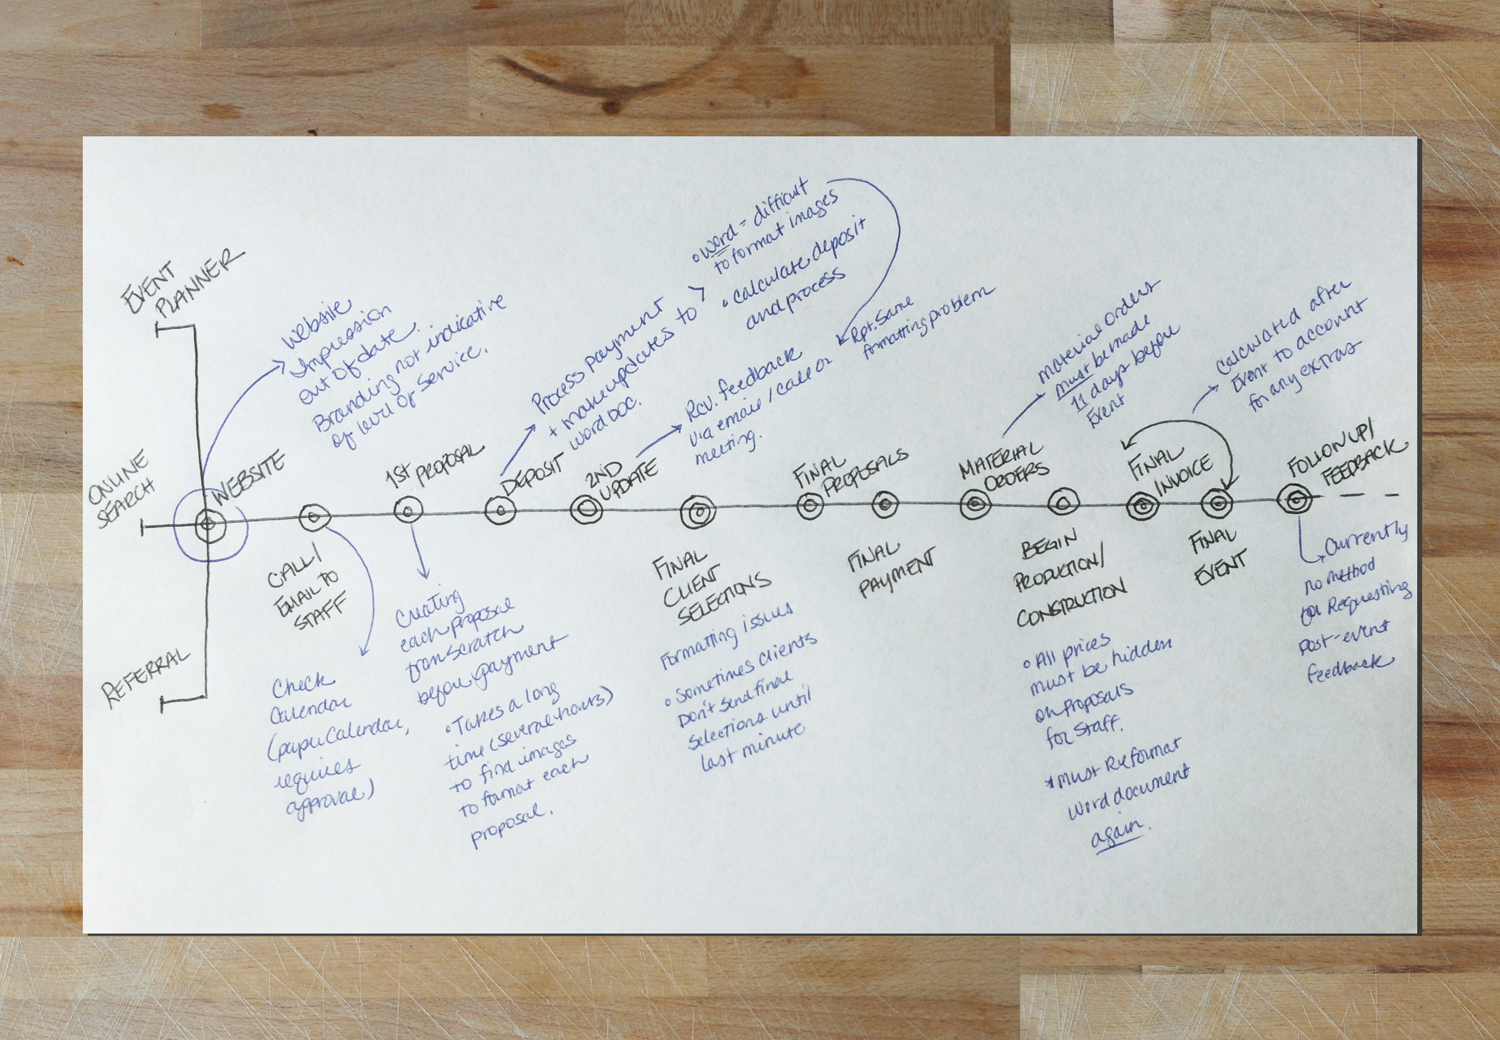 EVENT
PLANNER
ONLINE
SEARCH
REFERRAL
WEBSITE
Website
Impression
out of date.
Branding not indicative
of level of service.
CALL/
EMAIL TO
STAFF
Check
Calendar
(paper calendar,
requires
approval)
1ST PROPOSAL
Creating
each proposal
from scratch
before payment
• Takes a long
time (several hours)
to find images
to format each
proposal.
DEPOSIT
Process payment
+ make updates to
word doc.
• Word = difficult
to format images
• Calculate deposit
and process
2ND
UPDATE
Rcv. feedback
via email / call or
meeting.
Rpt. Same
formatting problem
FINAL
CLIENT
SELECTIONS
Formatting issues
• Sometimes clients
Don't send final
selections until
last minute
FINAL
PROPOSALS
FINAL
PAYMENT
MATERIAL
ORDERS
Material orders
must be made
11 days before
Event
BEGIN
PRODUCTION/
CONSTRUCTION
• All prices
must be hidden
on proposals
for staff.
* Must Reformat
word document
again.
FINAL
INVOICE
Calculated after
Event to account
for any extras
FINAL
EVENT
FOLLOW UP/
FEEDBACK
Currently
no method
for Requesting
post-event
feedback